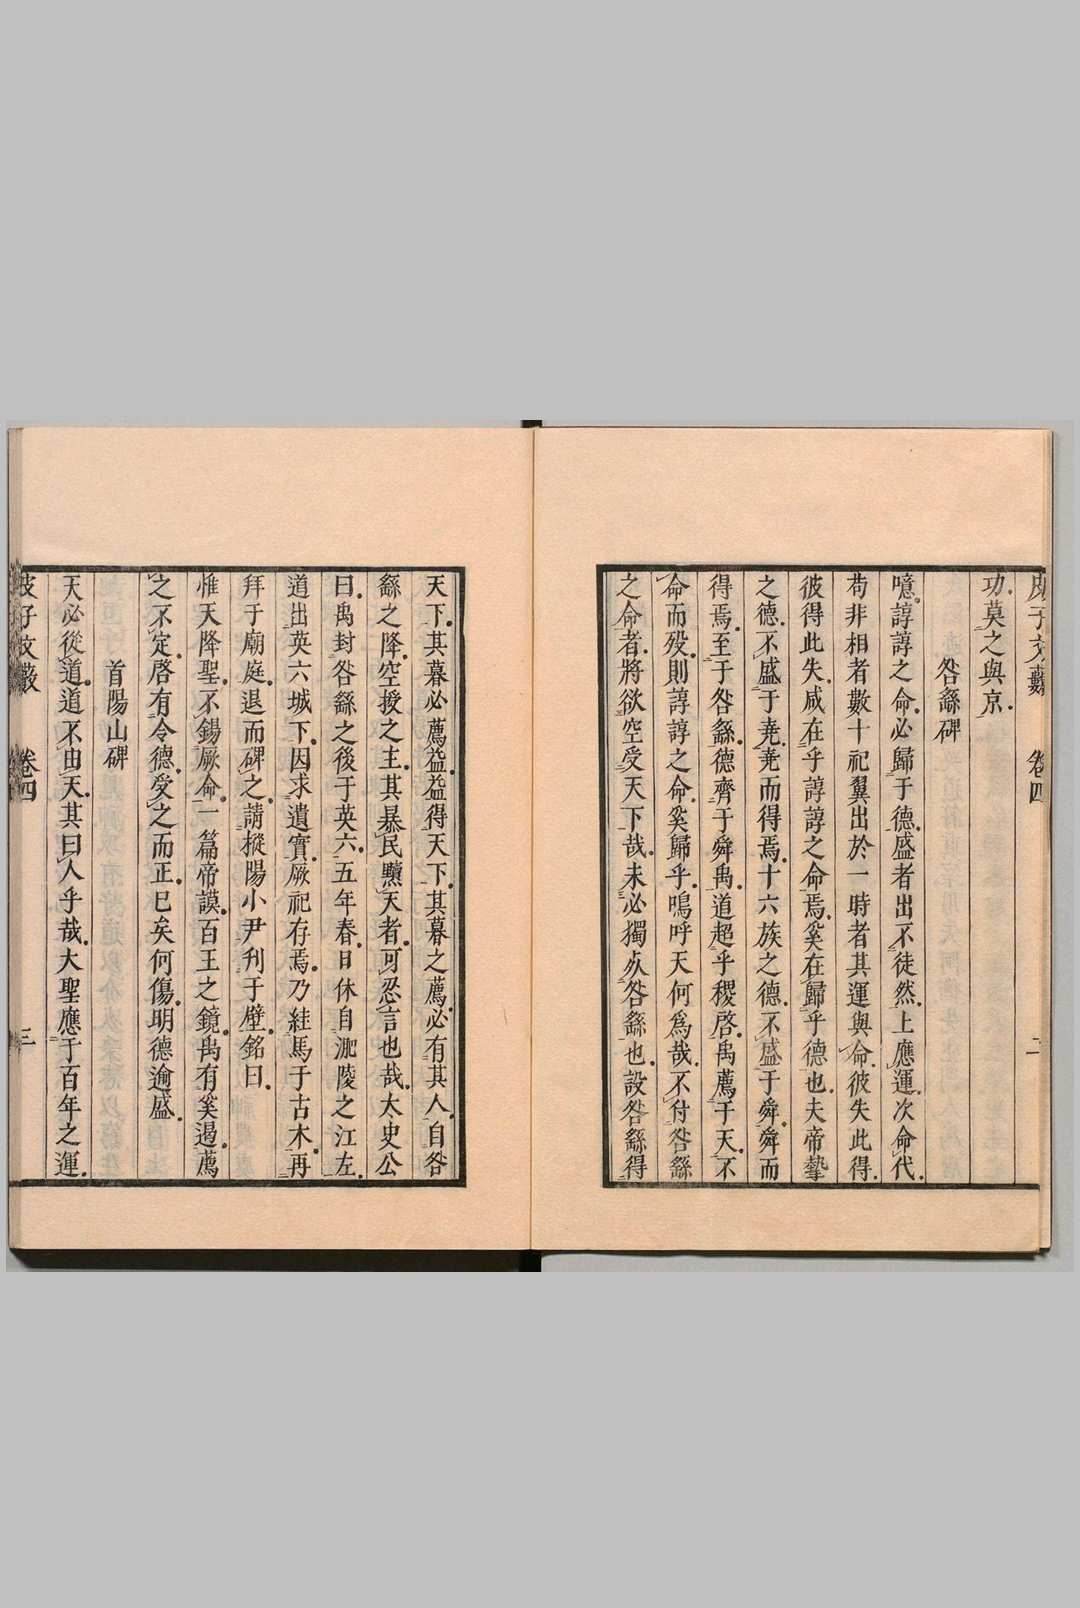 皮子文藪 卷四 二
功莫之與京
咎繇碑
噫諄諄之命必歸于德盛者出不徒然上應運次命代
苟非相者數十祀翼出於一時者其運與命彼失此得
彼得此失咸在乎諄諄之命焉奚在歸乎德也夫帝摯
之德不盛于堯堯而得焉十六族之德不盛于舜舜而
得焉至于咎繇德齊于舜禹道超乎稷啓禹薦于天不
命而歿則諄諄之命奚歸乎嗚呼天何爲哉不付咎繇
之命者將欲空受天下哉未必獨夙咎繇也設咎繇得
天下其暮必薦益益得天下其暮之薦必有其人自咎
繇之降空授之主其暴民黷天者可忍言也哉太史公
曰禹封咎繇之後于英六五年春日休自淝陵之江左
道出英六城下因求遺實厥祀存焉乃絓馬于古木再
拜于廟庭退而碑之請樅陽小尹刋于壁銘曰
惟天降聖不錫厥命一篇帝謨百王之鏡禹有奚遏薦
之不定啓有令德受之而正巳矣何傷明德逾盛
首陽山碑
天必從道道不由天其曰人乎哉大聖應于百年之運
皮子文藪 卷四 三